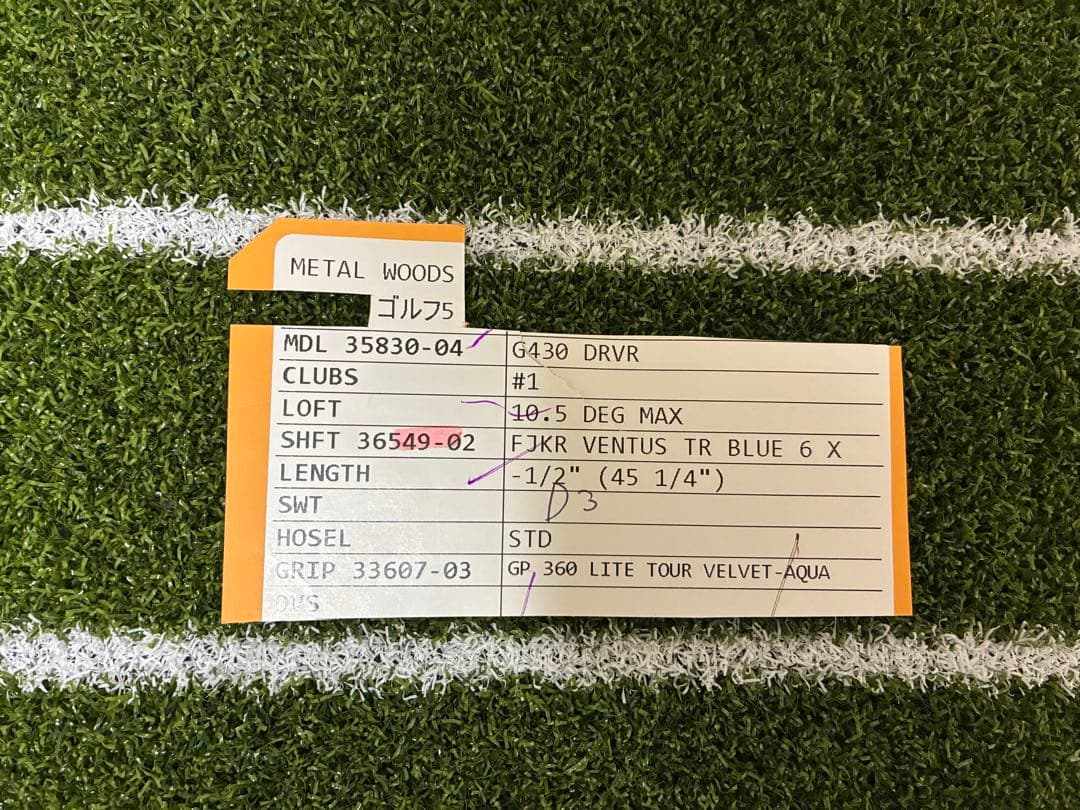 METAL WOODS
ゴルフ5
MDL 35830-04 G430 DRVR
CLUBS #1
LOFT 10.5 DEG MAX
SHFT 36549-02 FJKR VENTUS TR BLUE 6 X
LENGTH -1/2" (45 1/4")
SWT D3
HOSEL STD
GRIP 33607-03 GP 360 LITE TOUR VELVET-AQUA
OVS